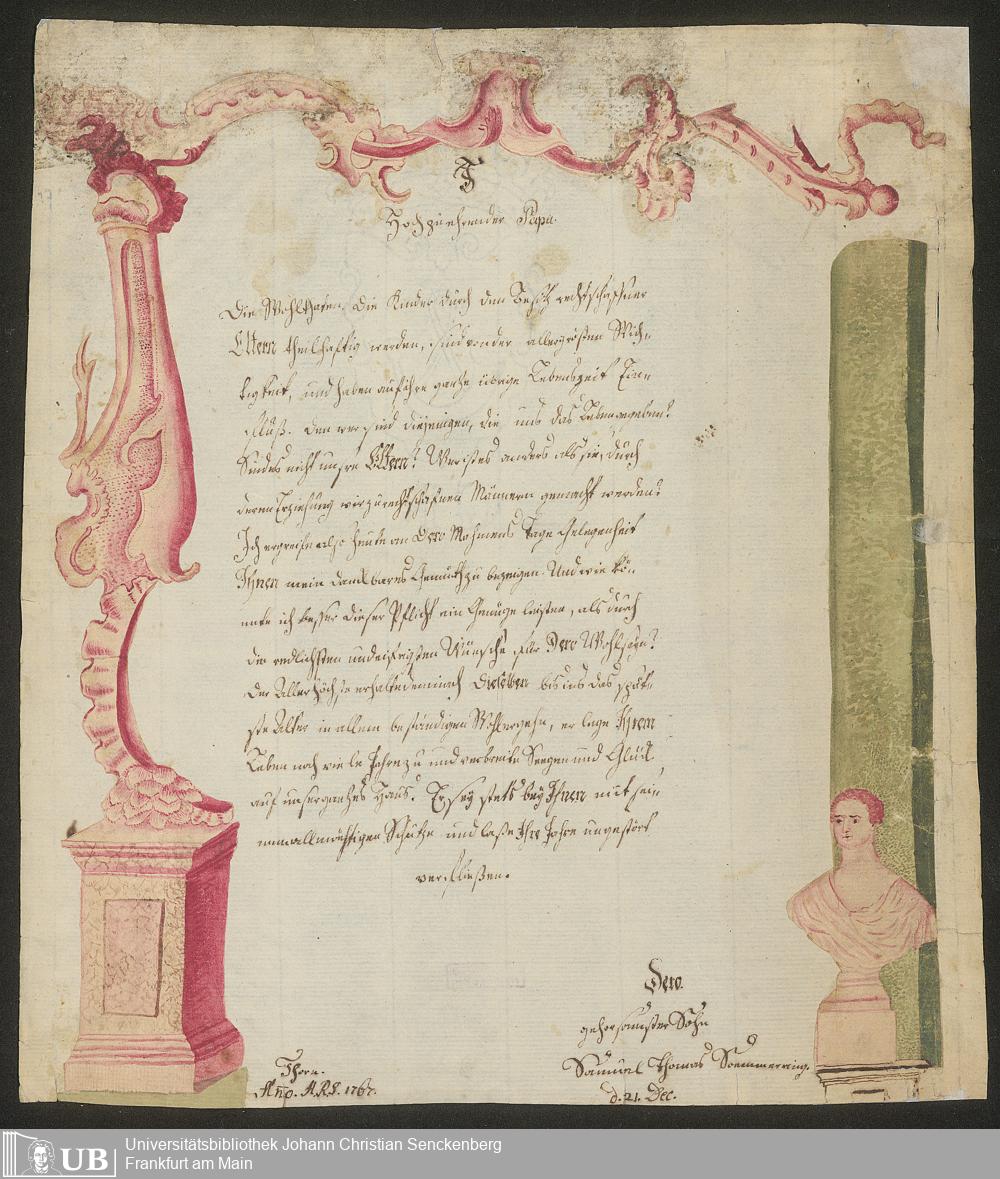 Hochzuehrender Papa.
Die Wohlthaten, die Kinder durch den Besitz rechtschaffner
Eltern theilhaftig werden, sind von der allergrößten Wich-
tigkeit, und haben auf ihre ganze übrige Lebenszeit Ein-
fluß. Den wer sind diejenigen, die uns das Leben gegeben?
Sind es nicht unsre Eltern? Wer ist es anders als sie, durch
deren Erziehung wir zu rechtschafnen Männern gemacht werden?
Ich ergreife also heute an Dero Nahmens Tage Gelegenheit
Ihnen mein dankbares Gemüth zu bezeigen. Und wie kön-
nte ich besser dieser Pflicht ein Genüge leisten, als durch
die redlichsten und eifrigsten Wünsche für Dero Wohlseyn?
Der Allerhöchste erhalte demnach Dieselben bis in das späte-
ste Alter in allem beständigen Wohlergehn, er lege Ihrem
Leben noch viele Jahre zu und verbreite Seegen und Glück
auf unser ganzes Haus. Er sey stets bey Ihnen mit sei-
nem allmächtigen Schutze und laße Ihre Jahre ungestört
verfließen.
Dero
gehorsamster Sohn
Samuel Thomas Soemmerring.
Thorn.
Año. A.R.S. 1767.
d. 21. Dec.
UB
Universitätsbibliothek Johann Christian Senckenberg
Frankfurt am Main